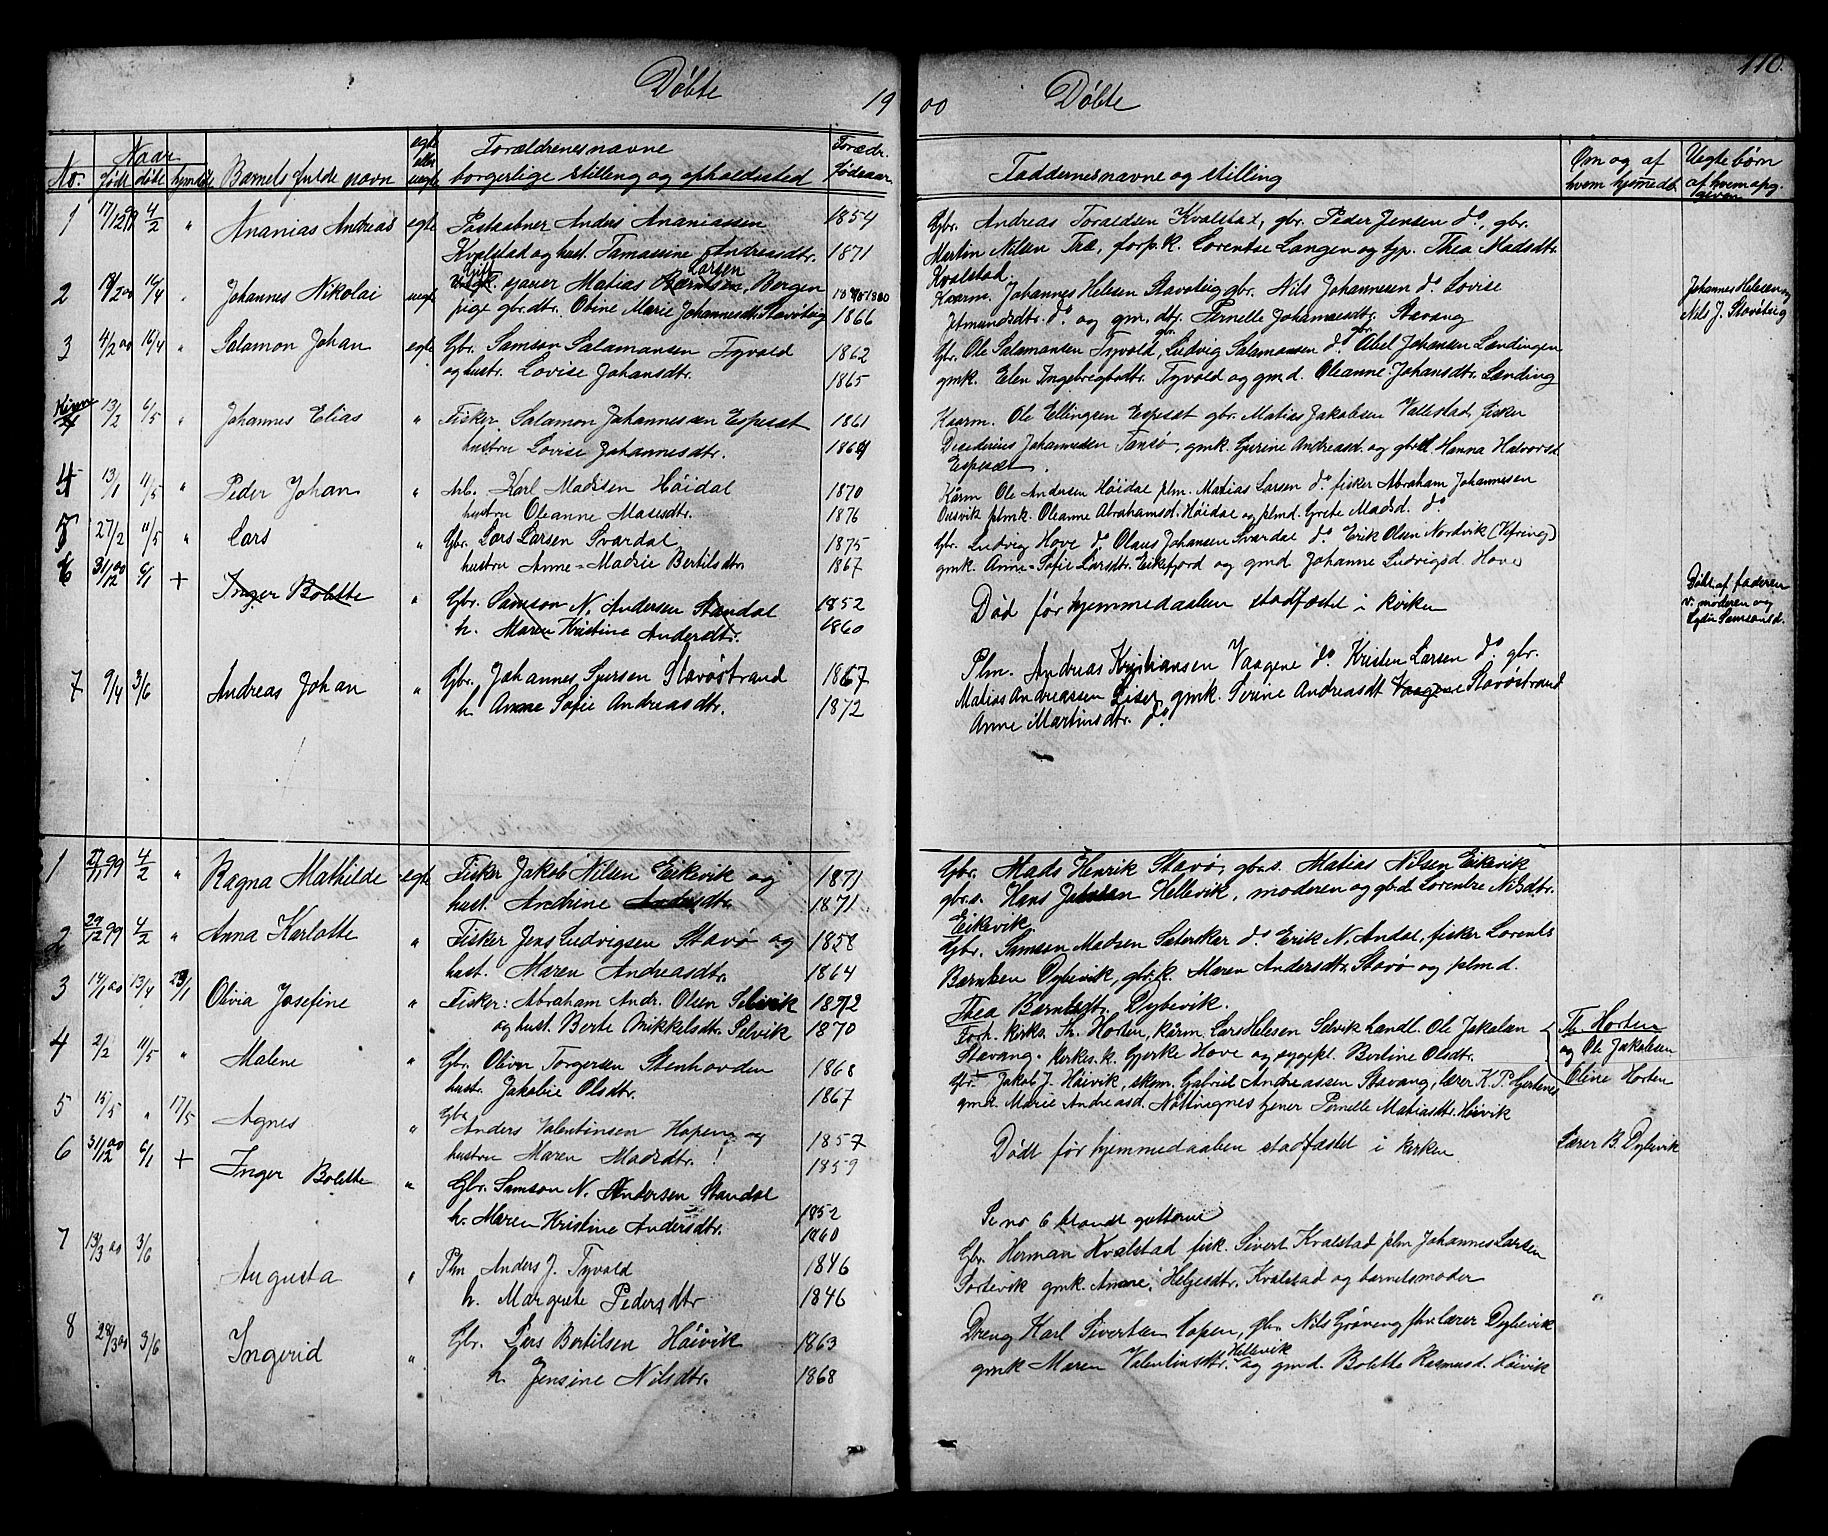 110.
Døbte 19 00 Døbte
No. Naar født døbt hjemdøbt Barnets fulde navn egte eller uegte Forældrenes navne borgerlige stilling og opholdssted Forældr. fødeaar
Faddernes navne og stilling Om og af hvem hjemmedøbt Uegte børn af hvem opgiven
1 17/12 99 4/2 " Ananias Andreas egte Postaabner Anders Ananiassen 1854
Kvalstad og hust. Tamasine Andreasdtr. 1871
Gbr. Andreas Toraldsen Kvalstad, gbr. Peder Jensen do, gbr.
Martin Nilsen Træ, forp.k. Lorentse Langen og tjp. Thea Madsdtr.
Kvalstad.
2 16/4 " Johannes Nikolai uegte Gift Matias Larsen, Bergen
pige gbr.dtr. Oline Marie Johannesdtr. Stavøteig 1866
Kaarm. Johannes Helesen Stavøteig gbr. Nils Johannesen do Lovise
Jetmundsdtr. do og gm. dtr. Pernelle Johannesdtr. Stavang
Johannes Helesen og
Nils J. Stavøteig
3 4/2 00 16/4 " Salamon Johan egte Gbr. Samson Salamonsen Tyvold 1862
og hustr. Lovise Johansdtr. 1865
Gbr. Ole Salamonsen Tyvold, gbr. Ludvig Salamonsen do gbr. Abel Johansen Landingen
gmk. Elen Ingebregtsdtr. Tyvold og gmd. Oleanne Johansdtr. Landing
Kinn 13/2 6/5 " Johannes Elias " Fisker Salamon Johannesen Espeset 1861
hustru Lovise Johannesdtr.
Kaarm. Ole Ellingsen Espeset gbr. Matias Jakobsen Vallestad, fisker
Desederius Johannesen Tansø, gmk. Gurine Andreasd. og gbrd. Hanna Halvorsd.
Espeset.
4 13/1 11/5 " Peder Johan " Arb. Karl Madssen Høidal 1870
hustru Oleanne Mosesdtr. 1876
Kårm Ole Andersen Høidal plm. Matias Larsen do fisker Abraham Johannesen
plmk. Oleanne Abrahamsd. Høidal og plmd. Grete Madsd. do
5 27/2 11/5 " Lars " Gbr. Lars Larsen Svardal 1875
hustru Anne-Madsie Bertilsdtr. 1867
Gbr. Ludvig Hove do Olaus Johansen Svardal do Erik Olsen Nordvik
gmk. Anne-Sofie Larsdtr. Eikefjord og gmd Johanne Ludvigsd. Hove
6 31/12 00 6/1 + Inger Bolette " Gbr. Samson N. Andersen Standal 1852
h. Maren Kristine Andersdtr. 1860
Død før hjemmedaaben stadfæstet i kirken
Døbt af faderen
v. moderen og
Lydia Samsonsd.
7 9/4 3/6 Andreas Johan " Gbr. Johannes Sjursen Stavøstrand 1867
h. Anne Sofie Andreasdtr. 1872
Plm. Andreas Kristiansen Vaagene do. Kristen Larsen do. gbr.
Matias Andreassen Liset gmk. Serine Andreasdt Vaagene Stavøstrand
Anne Martinsdtr. do
1 27/11 99 4/2 " Ragna Mathilde egte Fisker Jakob Nilsen Eikevik og 1871
hust. Andrine Andersdtr. 1871
Gbr. Mads Henrik Stavø, gbr.s. Matias Nilsen Eikevik
gbr.s. Hans Jakobsen Hellevik, moderen og gbrd. Lorentze Nilsdtr.
Eikevik
2 29/12 99 4/2 " Anna Karlotte " Fisker Jens Ludvigsen Stavø og 1858
hust. Maren Andreasdtr. 1864
Gbr. Samson Madsen Sæterker do. Erik N. Andal, fisker Lorents
Berntsen Dybevik, gbr.k. Maren Andersdtr. Stavø og plmd.
Thea Berntsdtr. Dybevik.
3 14/1 00 13/4 23/1 Olivia Josefine " Fisker: Abraham Andr. Olsen Selvik 1872
og hust. Berte Mikkelsdtr. Selvik 1870
Forh. kirks. Th. Horten, kårm. Lars Helesen Selvik handl. Ole Jakobsen
Stavang. kirkes.k. Gjerke Hove og sygepl. Bertine Olsdtr.
Th. Horten
og Ole Jakobsen
Oline Horten
4 2/2 11/5 " Malene " Gbr. Oliver Torgersen Stenhovden 1868
hustr. Jakobie Olsdtr. 1867
Gbr. Jakob J. Høivik, skom. Gabriel Andreassen Stavang, lærer K. P. Gjertenes
gmd. Marie Andreasd. Nøttingnes tjener Pernelle Matiasdtr. Høivik
5 15/5 " 17/5 Agnes " Gbr. Anders Valentinsen Hopen og 1857
hustru Maren Madsdtr. ! 1859
Dødt før hjemmedaaben stadfæstet i kirken
Lærer B. Dybevik
6 31/12 00 6/1 + Inger Bolette " Gbr. Samson N. Andersen Standal 1852
h. Maren Kristine Andersdtr. 1860
Se no 6 blandt gutterne
7 13/3 00 3/6 Augusta " Plm Anders J. Tyvold 1846
h. Margrete Pedersdtr 1846
Gbr. Herman Kvalstad fisk. Sivert Kvalstad plm Johannes Larsen
Sortevik gmk. Anne Helgesdtr. Kvalstad og barnets moder
8 28/3 00 3/6 Ingerid " Gbr. Lars Bertilsen Høivik 1863
h Jensine Nilsdtr. 1868
Dreng Karl Sivertsen Hopen, gbr. Nils Grøneng fhv. lærer Dybevik
gmk Maren Valentinsdtr. Hellevik og gmd. Bolette Rasmusd. Høivik